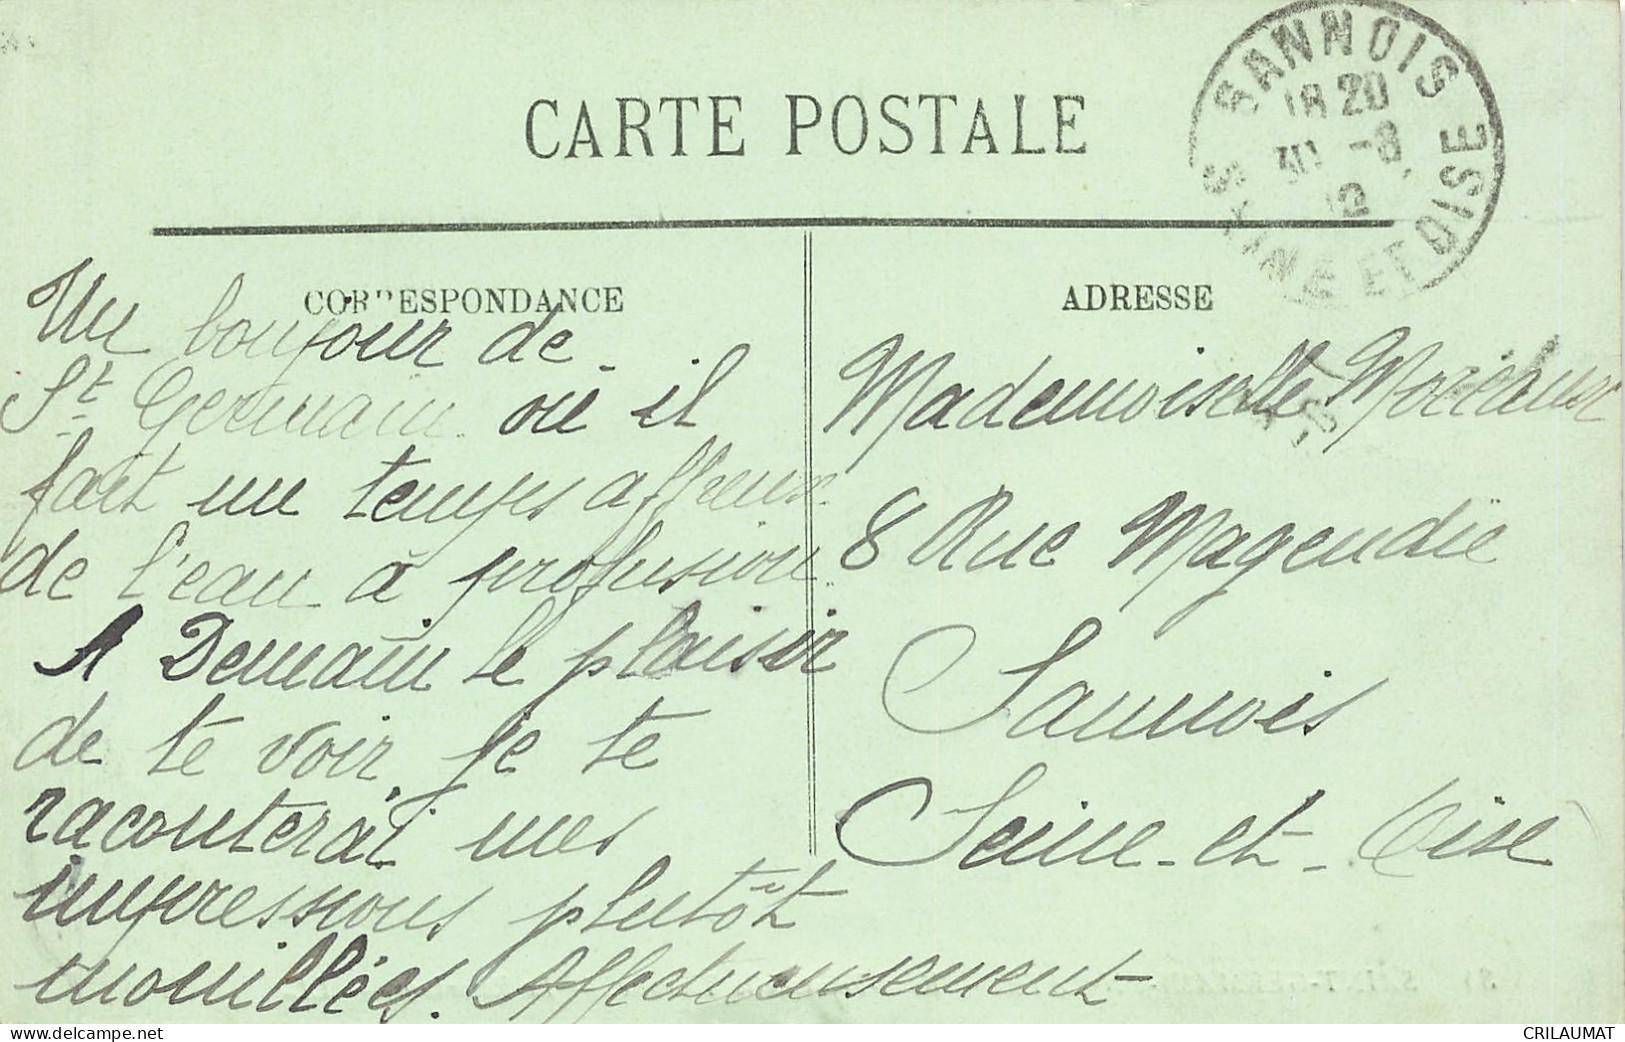 CARTE POSTALE
SANNOIS
18 20
30 -8
12
SEINE ET OISE
CORRESPONDANCE
ADRESSE
Un bonjour de
St Germain où il
fait un temps affreux
de l'eau à profusion.
A Demain le plaisir
de te voir, je te
raconterai mes
impressions plutôt
mouillées. Affectueusement
Mademoiselle Moreaux
8 Rue Magendie
Sannois
Seine-et-Oise
www.delcampe.net
CRILAUMAT